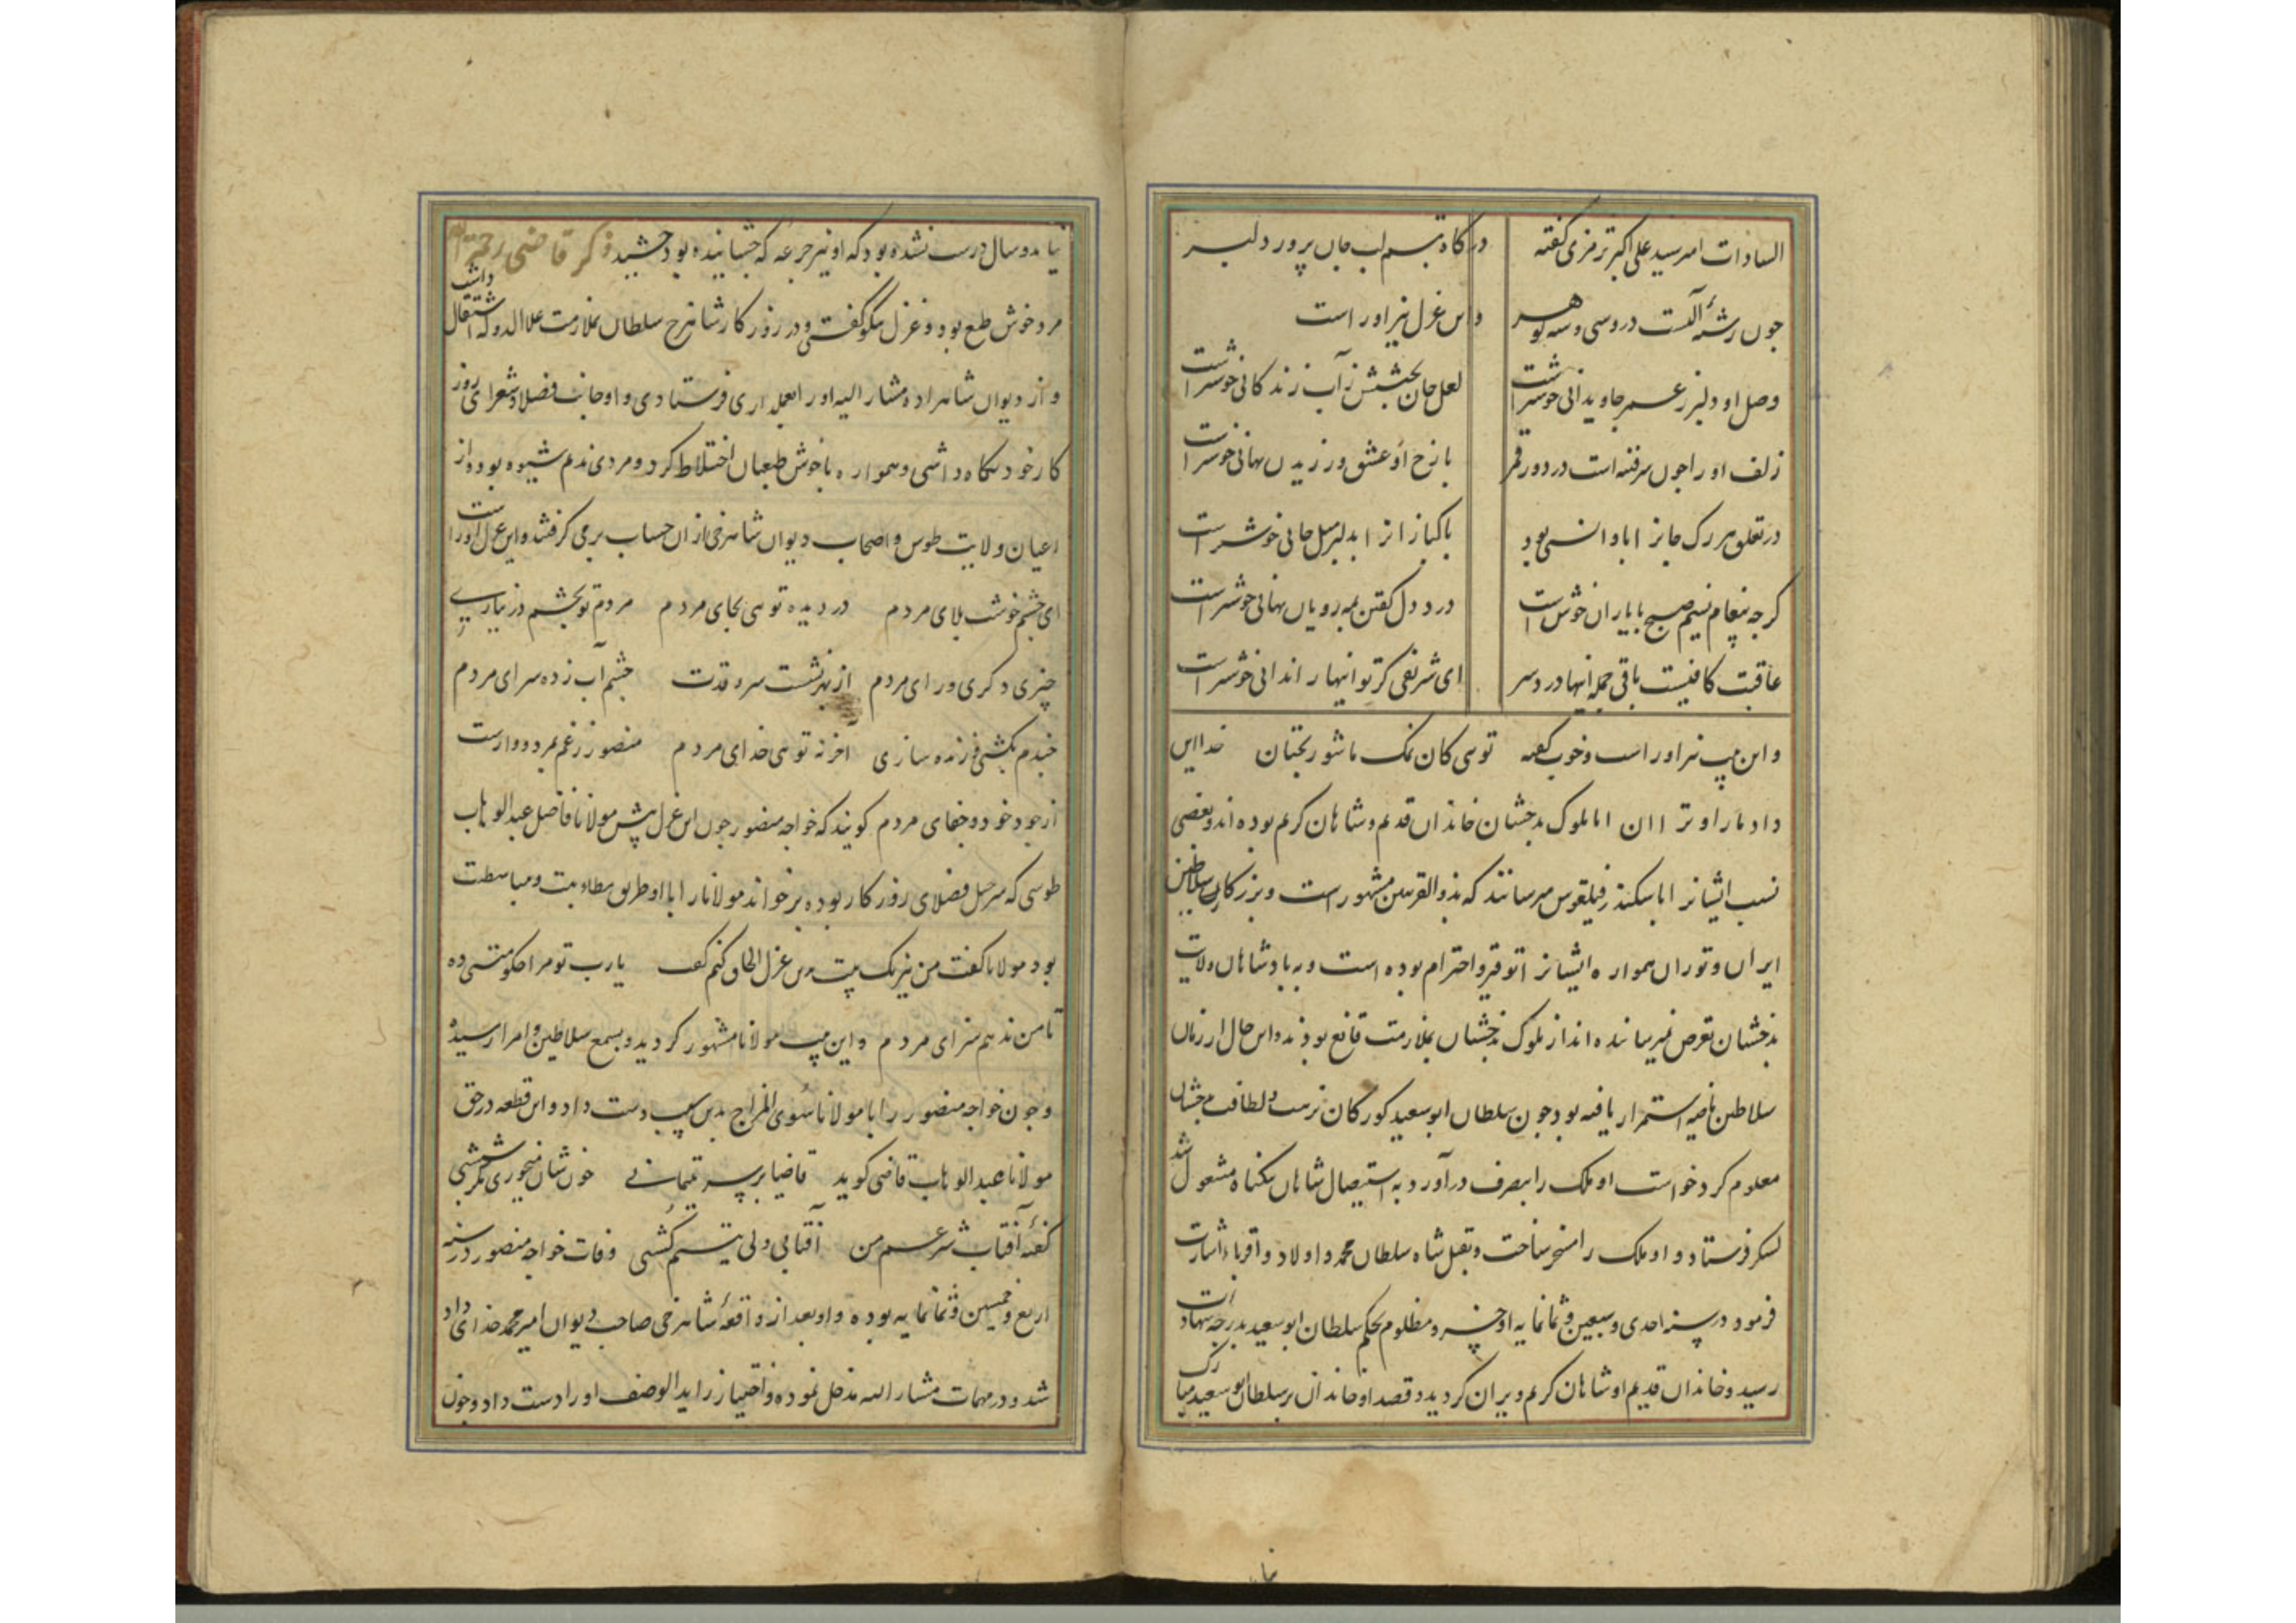 السادات امیر سید علی اکبر ترمزی گفته در کاه تبسم لب جان پرور دلبر
چون رشتهٔ است در وسی و سه گوهر واین غزل نیز اور است
وصل او دلبر ز عمر جاویدانی خوشتر است لعل جان بخشش ز آب زندکانی خوشتر است
زلف او را چون سر فتنه است در دور قمر با رخ او عشق ورزیدن نهانی خوشتر است
در تعلق هر رک جانرا با او انسی بود پاکبازانرا بدلبر میل جانی خوشتر است
کرچه پیغام نسیم صبح با یاران خوش است درد دل کفتن بمه رویان نهانی خوشتر است
عاقبت کافیست باقی جمله اینها درد سر ای شریفی کر تو اینها را ندانی خوشتر است
و این نیز اور است وخوب گفته توی کان نمک ما شور بختان خدا این
داد ما را و ترا ان اما ملوک بدخشان خاندان قدیم و شاهان کریم بوده اند و بعضی
نسب ایشانرا باسکندر فیلقوس میرسانند که بذوالقرنین مشهور است و بزرکان سلاطین
ایران و توران همواره ایشانرا توقیر و احترام بوده است و به بادشاهان ولایت
بدخشان تعرض نمیرسانیده اند از ملوک بدخشان بملازمت قانع بودند و این حال از زمان
سلاطین ماضیه استمرار یافته بود چون سلطان ابو سعید کورکان نزهت و لطافت بدخشان
معلوم کرد خواست او ملک را بتصرف در آورد به استیصال شاهان بیکناه مشغول شد
لشکر فرستاد و او ملک را مسخر ساخت و بقتل شاه سلطان محمد و اولاد و اقرباء اشارت
فرمود در سنه احدی و سبعین و ثمانمایه او خسرو مظلوم بحکم سلطان ابو سعید بدرجه شهادت
رسید و خاندان قدیم او شاهان کریم ویران کردید و قصد او خاندان بر سلطان ابو سعید مبارک
نیامد و سال درست نشده بود که او نیز جرعه که چشانیده بود چشید ذکر قاضی رحمة الله
مرد خوش طبع بود و غزل نیکو گفتی و در روزکار شاهرخ سلطان بملازمت علاالدوله اشتغال داشت
و از دیوان شاهزاده مشار الیه او را بعملداری فرستادی و او جانب فضلا و شعرای روز
کار خود نکاه داشتی و همواره با خوش طبعان اختلاط کرد و مردی ندیم شیوه بوده و از
اعیان ولایت طوس و اصحاب دیوان شاهرخی از ان حساب بر می کرفتند و این غزل اور است
ای چشم خوشت بلای مردم در دیده توی بجای مردم مردم تو بچشم در نیاری
چیزی دکری ورای مردم از بهر نشست سرو قدت چشم آب زده سرای مردم
چندم بکشی و زنده سازی آخر نه توی خدای مردم منصور ز غم بمرد و وارست
از جود خود و جفای مردم کویند که خواجه منصور چون این غزل پیش مولانا فاضل عبدالوهاب
طوسی که سرخیل فضلای روزکار بوده بر خواند مولانا را با او طریق مطایبت و مباسطت
بود مولانا کفت من نیز یک بیت بدین غزل الحاق کنم کفت یارب تو مرا حکومتی ده
تا من ندهم سزای مردم و این بیت مولانا مشهور کردید و بسمع سلاطین و امرا رسیده
و چون خواجه منصور را با مولانا سوی المزاج بدین سبب دست داد و این قطعه در حق
مولانا عبد الوهاب قاضی کوید قاضیا بر سر یتیمانی خون شان میخوری مکر شپشی
کفتهٔ آفتاب شرعم من آفتابی ولی یتیم کشی وفات خواجه منصور در سنه
اربع و خمسین و ثمانمایه بوده و او بعد از واقعهٔ شاهرخی صاحب دیوان امیر محمد خدای داد
شد و در مهمات مشار الیه مدخل نموده و اختیار زاید الوصف او را دست داد و چون